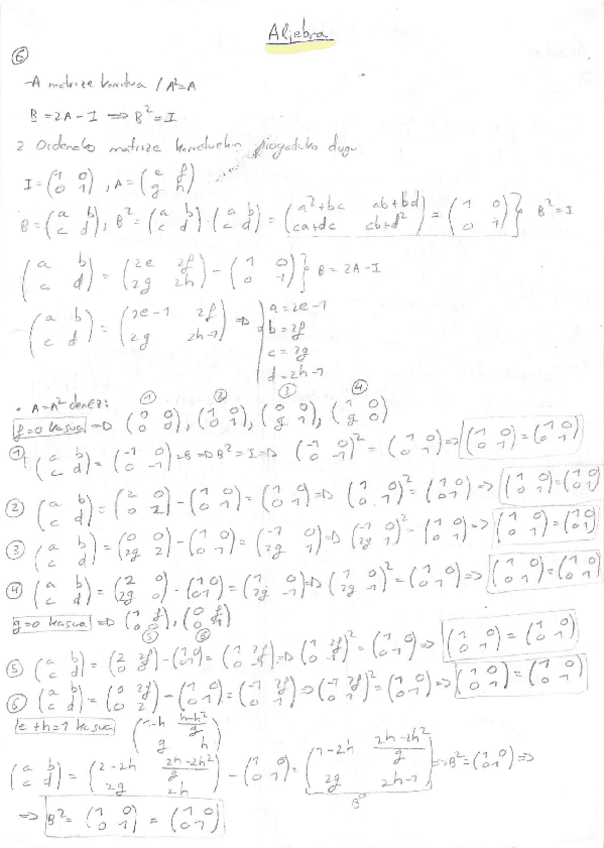 Aljebra
⑥
-A matrize karratua / A²=A
B = 2A - I ⟹ B² = I
2 Ordenako matrize karratuekin frogatuko dugu
I = (1 0; 0 1), A = (e f; g h)
B = (a b; c d), B² = (a b; c d) · (a b; c d) = (a²+bc ab+bd; ca+dc cb+d²) = (1 0; 0 1) } B² = I
(a b; c d) = (2e 2f; 2g 2h) - (1 0; 0 1) } B = 2A - I
(a b; c d) = (2e-1 2f; 2g 2h-1) ⟹ a = 2e-1
b = 2f
c = 2g
d = 2h-1
• A = A² denez:
f=0 kasua ⟹ ① (0 0; 0 0), ② (1 0; 0 1), ③ (0 0; g 1), ④ (1 0; g 0)
① (a b; c d) = (-1 0; 0 -1) = B ⟹ B² = I ⟹ (-1 0; 0 -1)² = (1 0; 0 1) ⟹ (1 0; 0 1) = (1 0; 0 1)
② (a b; c d) = (2 0; 0 2) - (1 0; 0 1) = (1 0; 0 1) ⟹ (1 0; 0 1)² = (1 0; 0 1) ⟹ (1 0; 0 1) = (1 0; 0 1)
③ (a b; c d) = (0 0; 2g 2) - (1 0; 0 1) = (-1 0; 2g 1) ⟹ (-1 0; 2g 1)² = (1 0; 0 1) ⟹ (1 0; 0 1) = (1 0; 0 1)
④ (a b; c d) = (2 0; 2g 0) - (1 0; 0 1) = (1 0; 2g -1) ⟹ (1 0; 2g -1)² = (1 0; 0 1) ⟹ (1 0; 0 1) = (1 0; 0 1)
g=0 kasua ⟹ ⑤ (1 f; 0 0), ⑥ (0 f; 0 1)
⑤ (a b; c d) = (2 2f; 0 0) - (1 0; 0 1) = (1 2f; 0 -1) ⟹ (1 2f; 0 -1)² = (1 0; 0 1) ⟹ (1 0; 0 1) = (1 0; 0 1)
⑥ (a b; c d) = (0 2f; 0 2) - (1 0; 0 1) = (-1 2f; 0 1) ⟹ (-1 2f; 0 1)² = (1 0; 0 1) ⟹ (1 0; 0 1) = (1 0; 0 1)
e+h=1 kasua (1-h (h-h²)/g; g h)
(a b; c d) = (2-2h (2h-2h²)/g; 2g 2h) - (1 0; 0 1) = (1-2h (2h-2h²)/g; 2g 2h-1) ⟹ B² = (1 0; 0 1) ⟹
B
⟹ B² = (1 0; 0 1) = (1 0; 0 1)